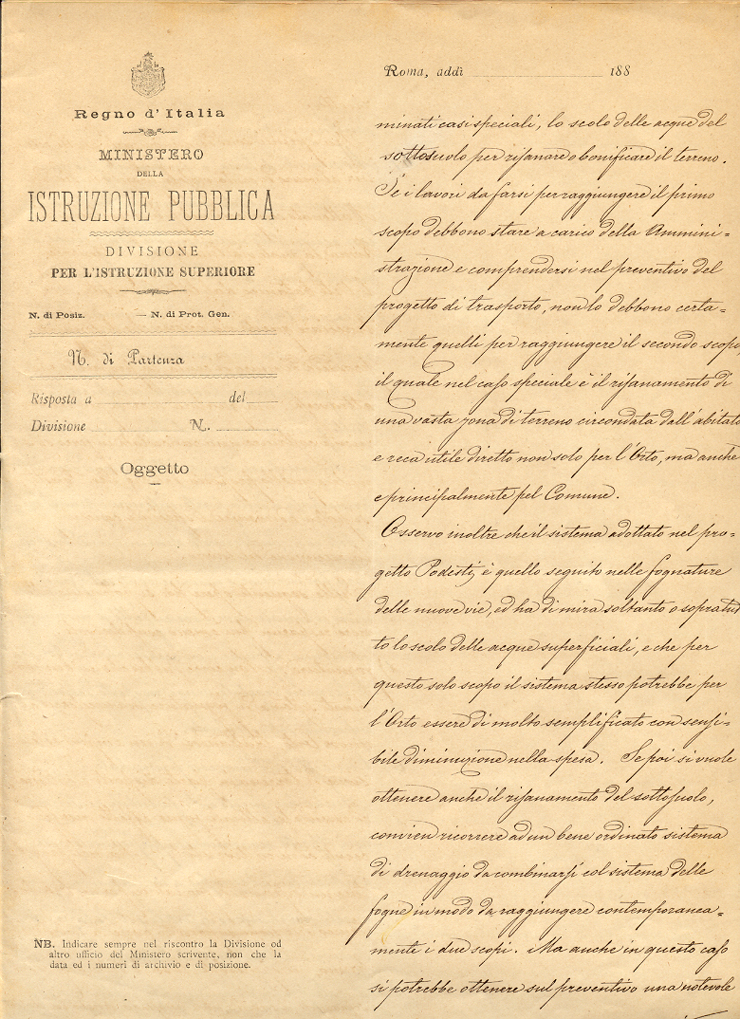 Regno d'Italia
MINISTERO
DELLA
ISTRUZIONE PUBBLICA
DIVISIONE
PER L'ISTRUZIONE SUPERIORE
N. di Posiz. — N. di Prot. Gen.
N. di Partenza
Risposta a del
Divisione N.
Oggetto
NB. Indicare sempre nel riscontro la Divisione od
altro ufficio del Ministero scrivente, non che la
data ed i numeri di archivio e di posizione.
Roma, addì 188
minati casi speciali, lo scolo delle acque del
sottosuolo per risanare o bonificare il terreno.
Se i lavori da farsi per raggiungere il primo
scopo debbono stare a carico della Ammini-
strazione e comprendersi nel preventivo del
progetto di trasporto, non lo debbono certa-
mente quelli per raggiungere il secondo scopo,
il quale nel caso speciale è il risanamento di
una vasta zona di terreno circondata dall'abitato
e reca utile diretto non solo per l'Orto, ma anche
e principalmente pel Comune.
Osservo inoltre che il sistema adottato nel pro-
getto Podesti, è quello seguito nelle fognature
delle nuove vie, ed ha di mira soltanto o sopratut
to lo scolo delle acque superficiali, e che per
questo solo scopo il sistema stesso potrebbe per
l'Orto essere di molto semplificato con sensi-
bile diminuzione nella spesa. Se poi si vuole
ottenere anche il risanamento del sottosuolo,
convien ricorrere ad un bene ordinato sistema
di drenaggio da combinarsi col sistema delle
fogne in modo da raggiungere contemporanea-
mente i due scopi. Ma anche in questo caso
si potrebbe ottenere sul preventivo una notevole